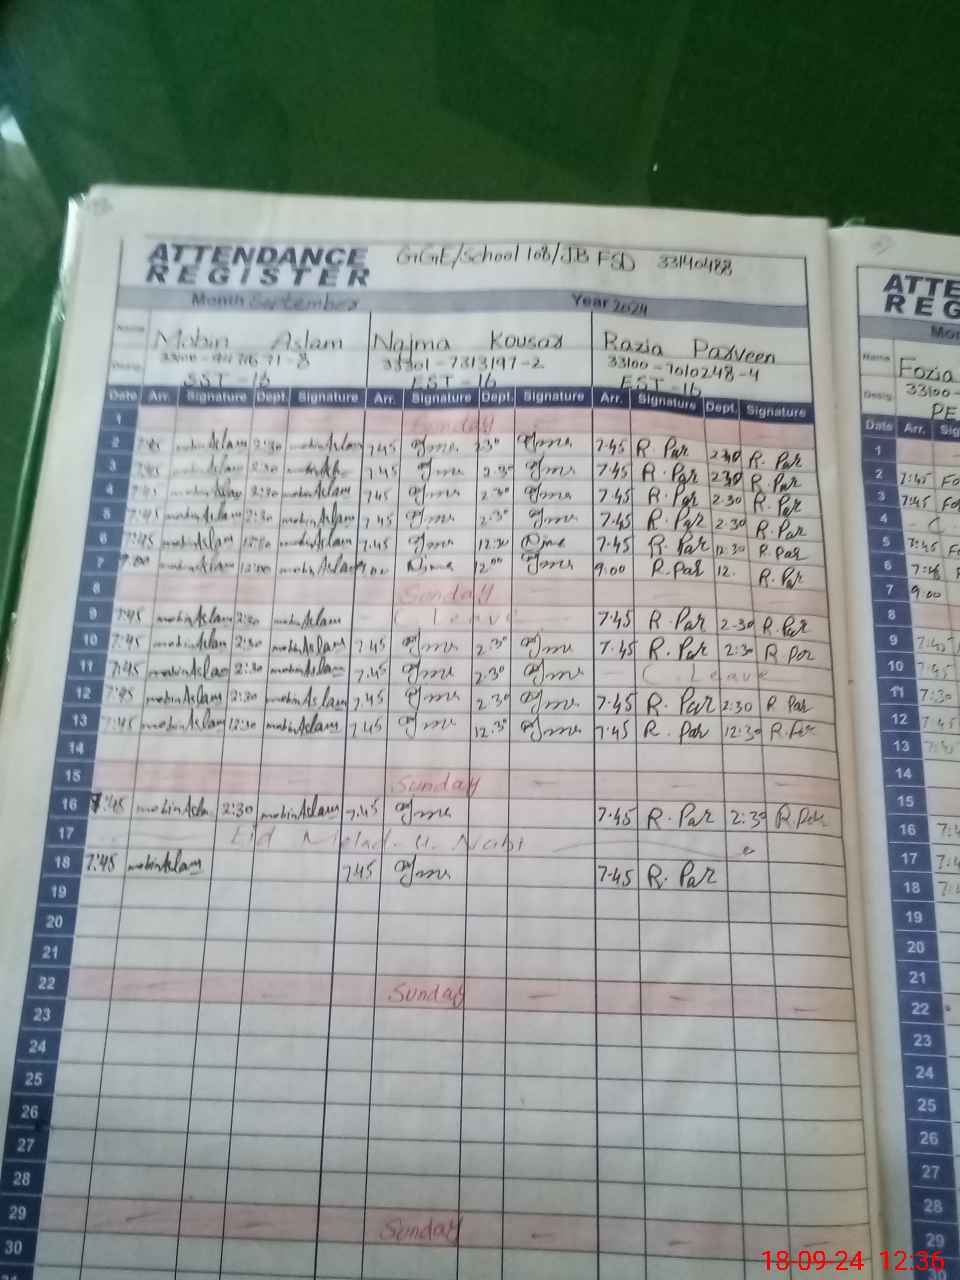 ATTENDANCE
REGISTER
GGE/School 108/JB FSD 33140488
Month September Year 2024
Name Mobin Aslam Najma Kousar Razia Parveen
33301-7313197-2 33100-7010248-4
Desig. SST-16 EST-16 EST-16
Date Arr. Signature Dept. Signature Arr. Signature Dept. Signature Arr. Signature Dept. Signature
1 Sunday
2 7:45 mobin Aslam 2:30 mobin Aslam 7.45 2.30 7.45 R. Par 2.30 R. Par
3 7:45 mobin Aslam 2:30 7.45 2.30 7.45 R. Par 2.30 R. Par
4 7:45 mobin Aslam 2:30 mobin Aslam 7.45 2.30 7.45 R. Par 2.30 R. Par
5 7:45 mobin Aslam 2:30 mobin Aslam 7.45 2.30 7.45 R. Par 2.30 R. Par
6 7:45 mobin Aslam 12:30 mobin Aslam 7.45 12.30 7.45 R. Par 12.30 R. Par
7 9:00 mobin Aslam 12:00 mobin Aslam 9.00 12.00 9.00 R. Par 12. R. Par
8 Sunday
9 7:45 mobin Aslam 2:30 mobin Aslam C Leave 7.45 R. Par 2.30 R. Par
10 7:45 mobin Aslam 2:30 mobin Aslam 7.45 2.30 7.45 R. Par 2:30 R. Par
11 7:45 mobin Aslam 2:30 mobin Aslam 7.45 2.30 C. Leave
12 7:45 mobin Aslam 2:30 mobin Aslam 7.45 2.30 7.45 R. Par 2:30 R. Par
13 7:45 mobin Aslam 12:30 mobin Aslam 7.45 12.30 7.45 R. Par 12.30 R. Par
14
15 Sunday
16 7:45 mobin Aslam 2:30 mobin Aslam 7.45 7.45 R. Par 2:30 R. Par
17 Eid Melad. u. Nabi
18 7:45 mobin Aslam 7.45 7.45 R. Par
19
20
21
22 Sunday
23
24
25
26
27
28
29 Sunday
30
ATTE
REG
Mon
Name Fozia
33100-
Desig. PE
Date Arr. Sig
1
2 7:45 Fo
3 7:45 Fo
4 C
5 7:45 Fo
6 7:45 F
7 9:00
8
9 7:45
10 7:45
11 7:30
12 7:45
13 7:45
14
15
16 7:4
17 7:4
18 7:4
19
20
21
22
23
24
25
26
27
28
29
30
18-09-24 12:36